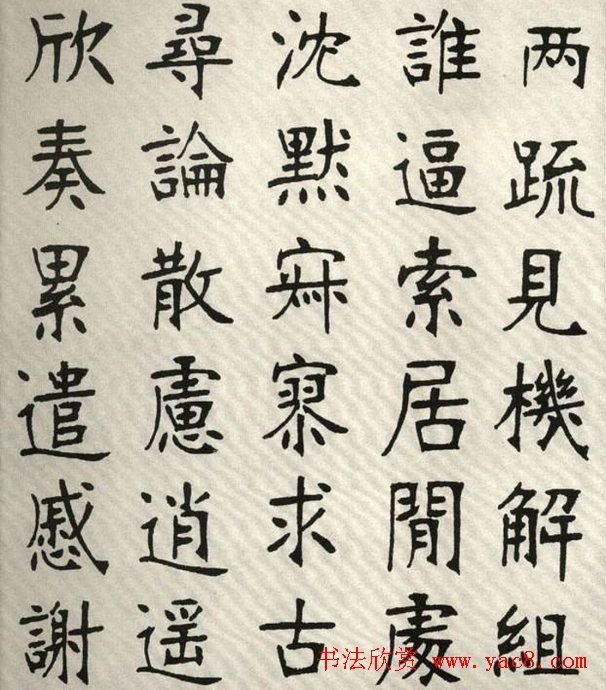 两疏見機解組
誰逼索居閒處
沈默寂寥求古
尋論散慮逍遥
欣奏累遣慼謝
书法欣赏 www.yac8.com